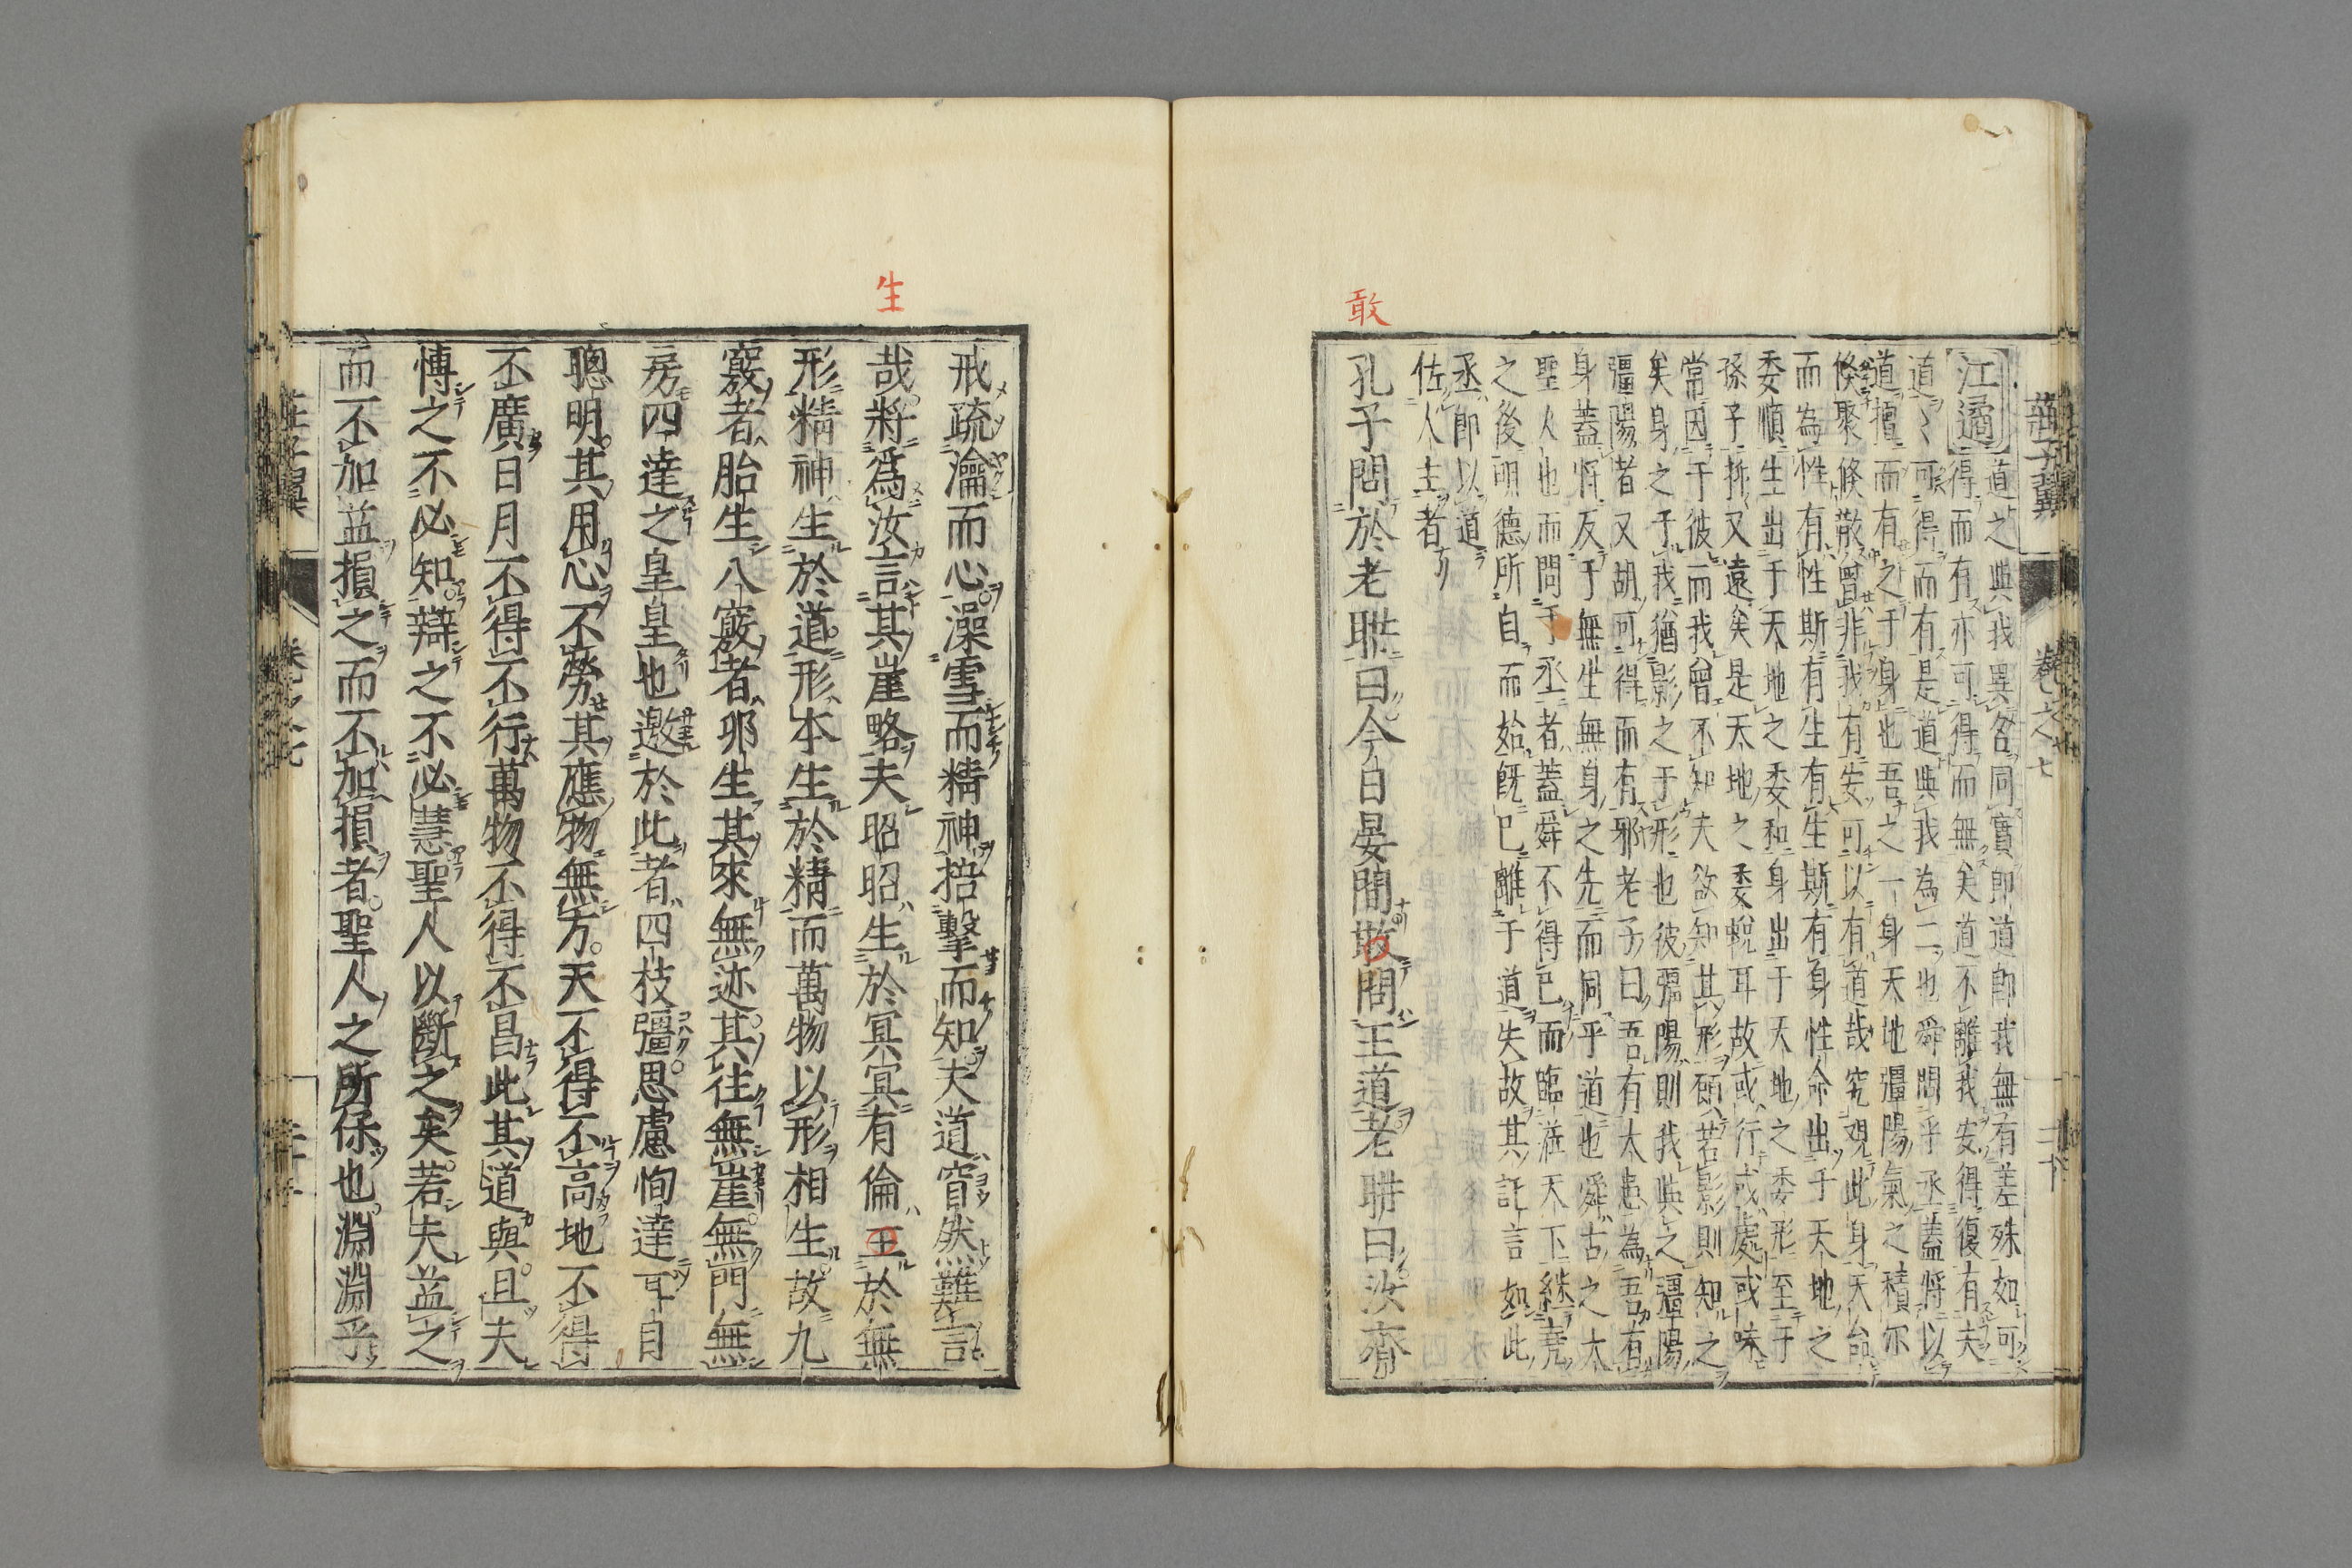 莊子翼
卷之七
江遹 道之與我異名同實即道即我無有差殊如可
得而有亦可得而無矣道不離我安得復有夫
道〻可得而有是道與我為二也舜問乎丞蓋將以
道擅而有之于身也吾之一身天地彊陽氣之積尔
倏聚倏散曾非我有安可以有道哉究觀此身天台
而為性有性斯有生有生斯有身性命出于天地之
委順生出于天地之委和身出于天地之委形至于
孫子拆又遠矣是天地之委蛻耳故或行或處或味
常因于彼而我曾不知夫欲知其形頋若影則知之
矣身之于我猶影之于形也彼彊陽則我與之彊陽
彊陽者又胡可得而有邪老子曰吾有大患為吾有
身蓋將反于無生無身之先而同乎道也舜古之大
聖人也而問于丞者蓋舜不得已而臨蒞天下継堯
之後明德所自而始旣已離于道失故其託言如此
丞即以道
佐人主者
敢
孔子問於老聃曰今日晏間敢問王道老聃曰汝齋
生
戒疏瀹而心澡雪而精神掊擊而知夫道窅然難言
哉將爲汝言其崖略夫昭昭生於冥冥有倫王於無
形精神生於道形本生於精而萬物以形相生故九
竅者胎生八竅者卵生其來無迹其往無崖無門無
房四達之皇皇也邀於此者四枝彊思慮恂達耳目
聰明其用心不勞其應物無方天不得不高地不得
不廣日月不得不行萬物不得不昌此其道與且夫
愽之不必知辯之不必慧聖人以斷之矣若夫益之
而不加益損之而不加損者聖人之所保也淵淵乎
莊子翼
卷之七